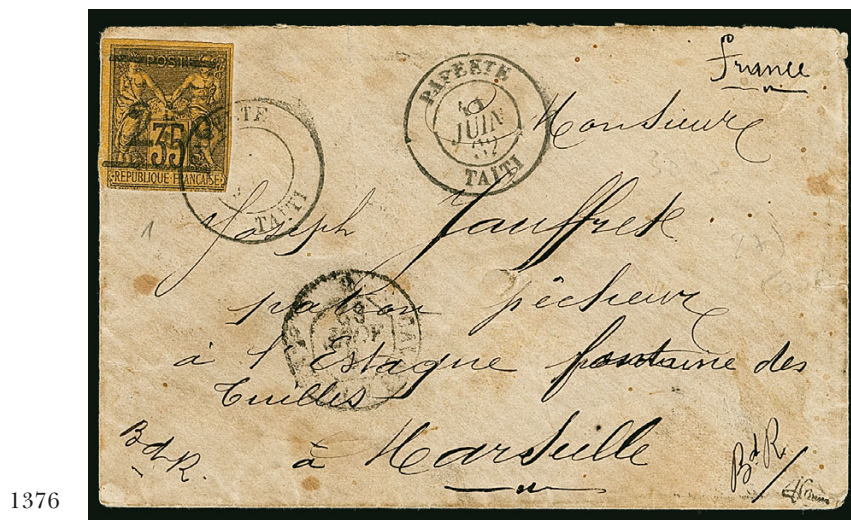 POSTES
25c
35
REPUBLIQUE FRANÇAISE
TAITI
PAPEETE
JUIN
82
TAITI
France
Monsieur
Joseph Jauffret
patron pêcheur
à l'Estaque fontaine des
Tuilles
à Marseille
Bd R.
Bd R
1376